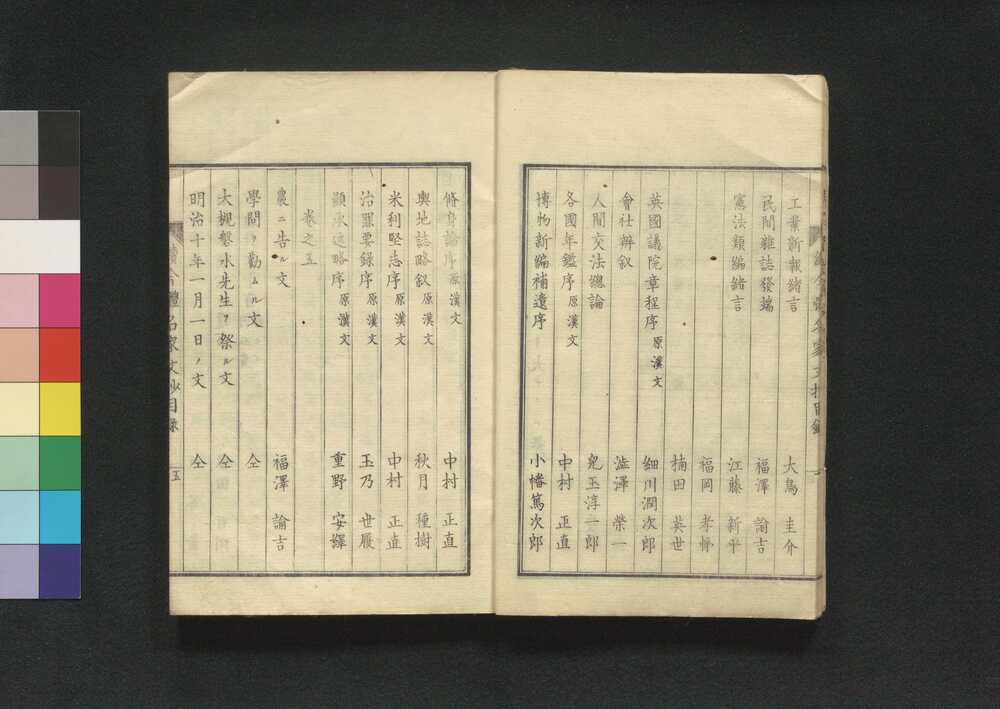 工業新報緒言 大鳥 圭介
民間雜誌發端 福澤 諭吉
憲法類編緒言 江藤 新平
福岡 孝悌
楠田 英世
英國議院章程序 原漢文 細川潤次郎
會社辨叙 澁澤 榮一
人間交法總論 兒玉淳一郎
各國年鑑序 原漢文 中村 正直
博物新編補遺序 小幡篤次郎
脩身論序 原漢文 中村 正直
輿地誌略叙 原漢文 秋月 種樹
米利堅志序 原漢文 中村 正直
治罪要録序 原漢文 玉乃 世履
顯承述略序 原漢文 重野 安繹
卷之五
農ニ告ル文 福澤 諭吉
學問ヲ勸ムル文 仝
大槻磐水先生ヲ祭ル文 仝
明治十年一月一日ノ文 仝
續今體名家文抄目録 五